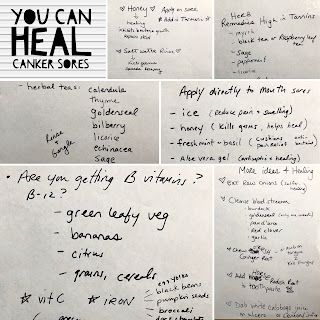 YOU CAN
HEAL
CANKER SORES
♡ Honey ♡
Apply on sore
Add in Turmeric
♡ Salt water Rinse ♡
Herb
Remedies High in Tannins
- myrrh
- black tea or Raspberry leaf tea
- sage
- peppermint
- licorice
- herbal teas:
calendula
Thyme
goldenseal
bilberry
licorice
echinacea
Sage
Rinse
Gargle
Apply directly to mouth sores
- ice (reduce pain + swelling)
- honey (kills germs, helps heal)
- fresh mint + basil (cushions, anti-
- aloe vera gel (antiseptic + healing)
• Are you getting B vitamins?
B-12?
- green leafy veg
- bananas
- citrus
- grains, cereals
☆ Vit C
☆ IRON
egg yolks
black beans
pumpkin seeds
broccoli
More ideas + Healing
Eat Raw Onions
Cleanse blood stream
- burdock
- goldenseal
- Red clover
- garlic
Ginger Root
Add
Root
to toothpaste
Dab white cabbage juice